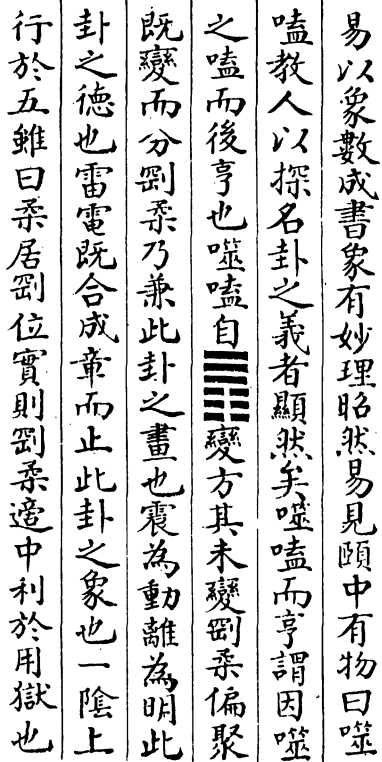 易以象數成書象有妙理昭然易見頤中有物曰噬
嗑教人以探名卦之義者顯然矣噬嗑而亨謂因噬
之嗑而後亨也噬嗑自䷋變方其未變剛柔偏聚
既變而分剛柔乃兼此卦之畫也震為動離為明此
卦之德也雷電既合成章而止此卦之象也一陰上
行於五雖曰柔居剛位實則剛柔適中利於用獄也